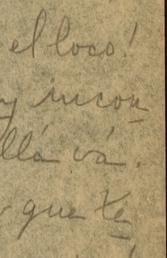 el loco!
y incon
llá vá.
que te